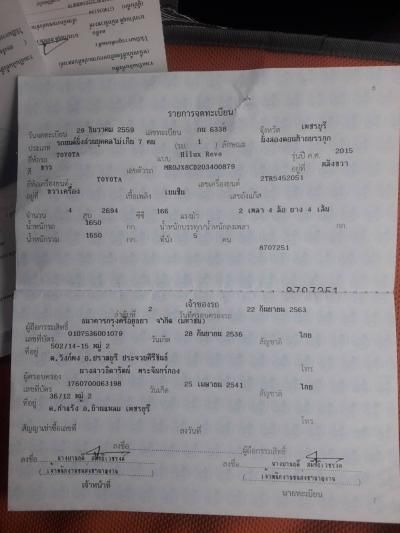 รายการจดทะเบียน
วันจดทะเบียน 29 ธันวาคม 2559 เลขทะเบียน กน 6338 จังหวัด เพชรบุรี
ประเภท รถยนต์นั่งส่วนบุคคลไม่เกิน 7 คน (รย. 1 ) ลักษณะ นั่งสองตอนท้ายบรรทุก
ยี่ห้อรถ TOYOTA แบบ Hilux Revo รุ่นปี ค.ศ. 2015
สี ขาว เลขตัวรถ MR0JX8CD203400879 อยู่ที่
ยี่ห้อเครื่องยนต์ TOYOTA เลขเครื่องยนต์ 2TR5452051
อยู่ที่ ขวาเครื่อง เชื้อเพลิง เบนซิน เลขถังแก๊ส
จำนวน 4 สูบ 2694 ซีซี 166 แรงม้า 2 เพลา 4 ล้อ ยาง 4 เส้น
น้ำหนักรถ 1650 กก. น้ำหนักบรรทุก/น้ำหนักลงเพลา กก.
น้ำหนักรวม 1650 กก. ที่นั่ง 5 คน
8707251
8707251
เจ้าของรถ
ลำดับที่ 2 วันที่ครอบครองรถ 22 กันยายน 2563
ผู้ถือกรรมสิทธิ์ ธนาคารกรุงศรีอยุธยา จำกัด (มหาชน)
เลขที่บัตร 0107536001079 วันเกิด 28 กันยายน 2536 สัญชาติ ไทย
ที่อยู่ 502/14-15 หมู่ 2
ต.วังก์พง อ.ปราณบุรี ประจวบคีรีขันธ์ โทร
ผู้ครอบครอง
เลขที่บัตร 1760700063198 วันเกิด 25 เมษายน 2541 สัญชาติ ไทย
ที่อยู่ 36/12 หมู่ 2
อ.บ้านแหลม เพชรบุรี โทร
สัญญาเช่าซื้อเลขที่ ลงวันที่
ลงชื่อ ผู้ถือกรรมสิทธิ์
ลงชื่อ ลงชื่อ
เจ้าหน้าที่ นายทะเบียน